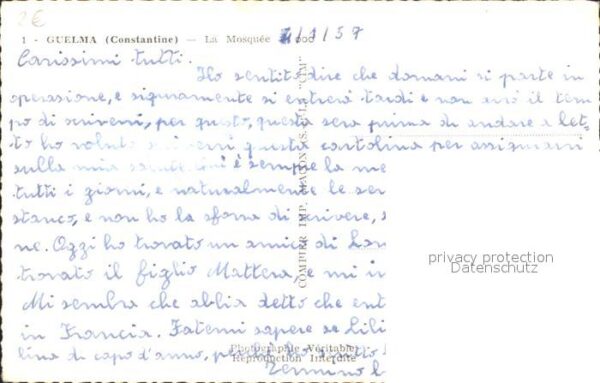 2€
1 - GUELMA (Constantine) — La Mosquée
1/1/57
Carissimi tutti.
Ho sentito dire che domani si parte in
operazione, e sicuramente si entrerà tardi e non avrò il tem
po di scrivervi, per questo, questa sera prima di andare a let-
to ho voluto scrivervi questa cartolina per assicurarvi
sulla mia salute. è sempre la me
tutti i giorni, e naturalmente le ser
stanco, e non ho la forza di scrivere,
ne. Oggi ho trovato un amico di
trovato il figlio Mattera, e mi
Mi sembra che abbia detto che ent
in Francia. Fatemi sapere se Lili
lina di capo d'anno,
Termino
COMPTER IMP. MACON
"CIM"
Photographie Véritable
Reproduction Interdite
privacy protection
Datenschutz